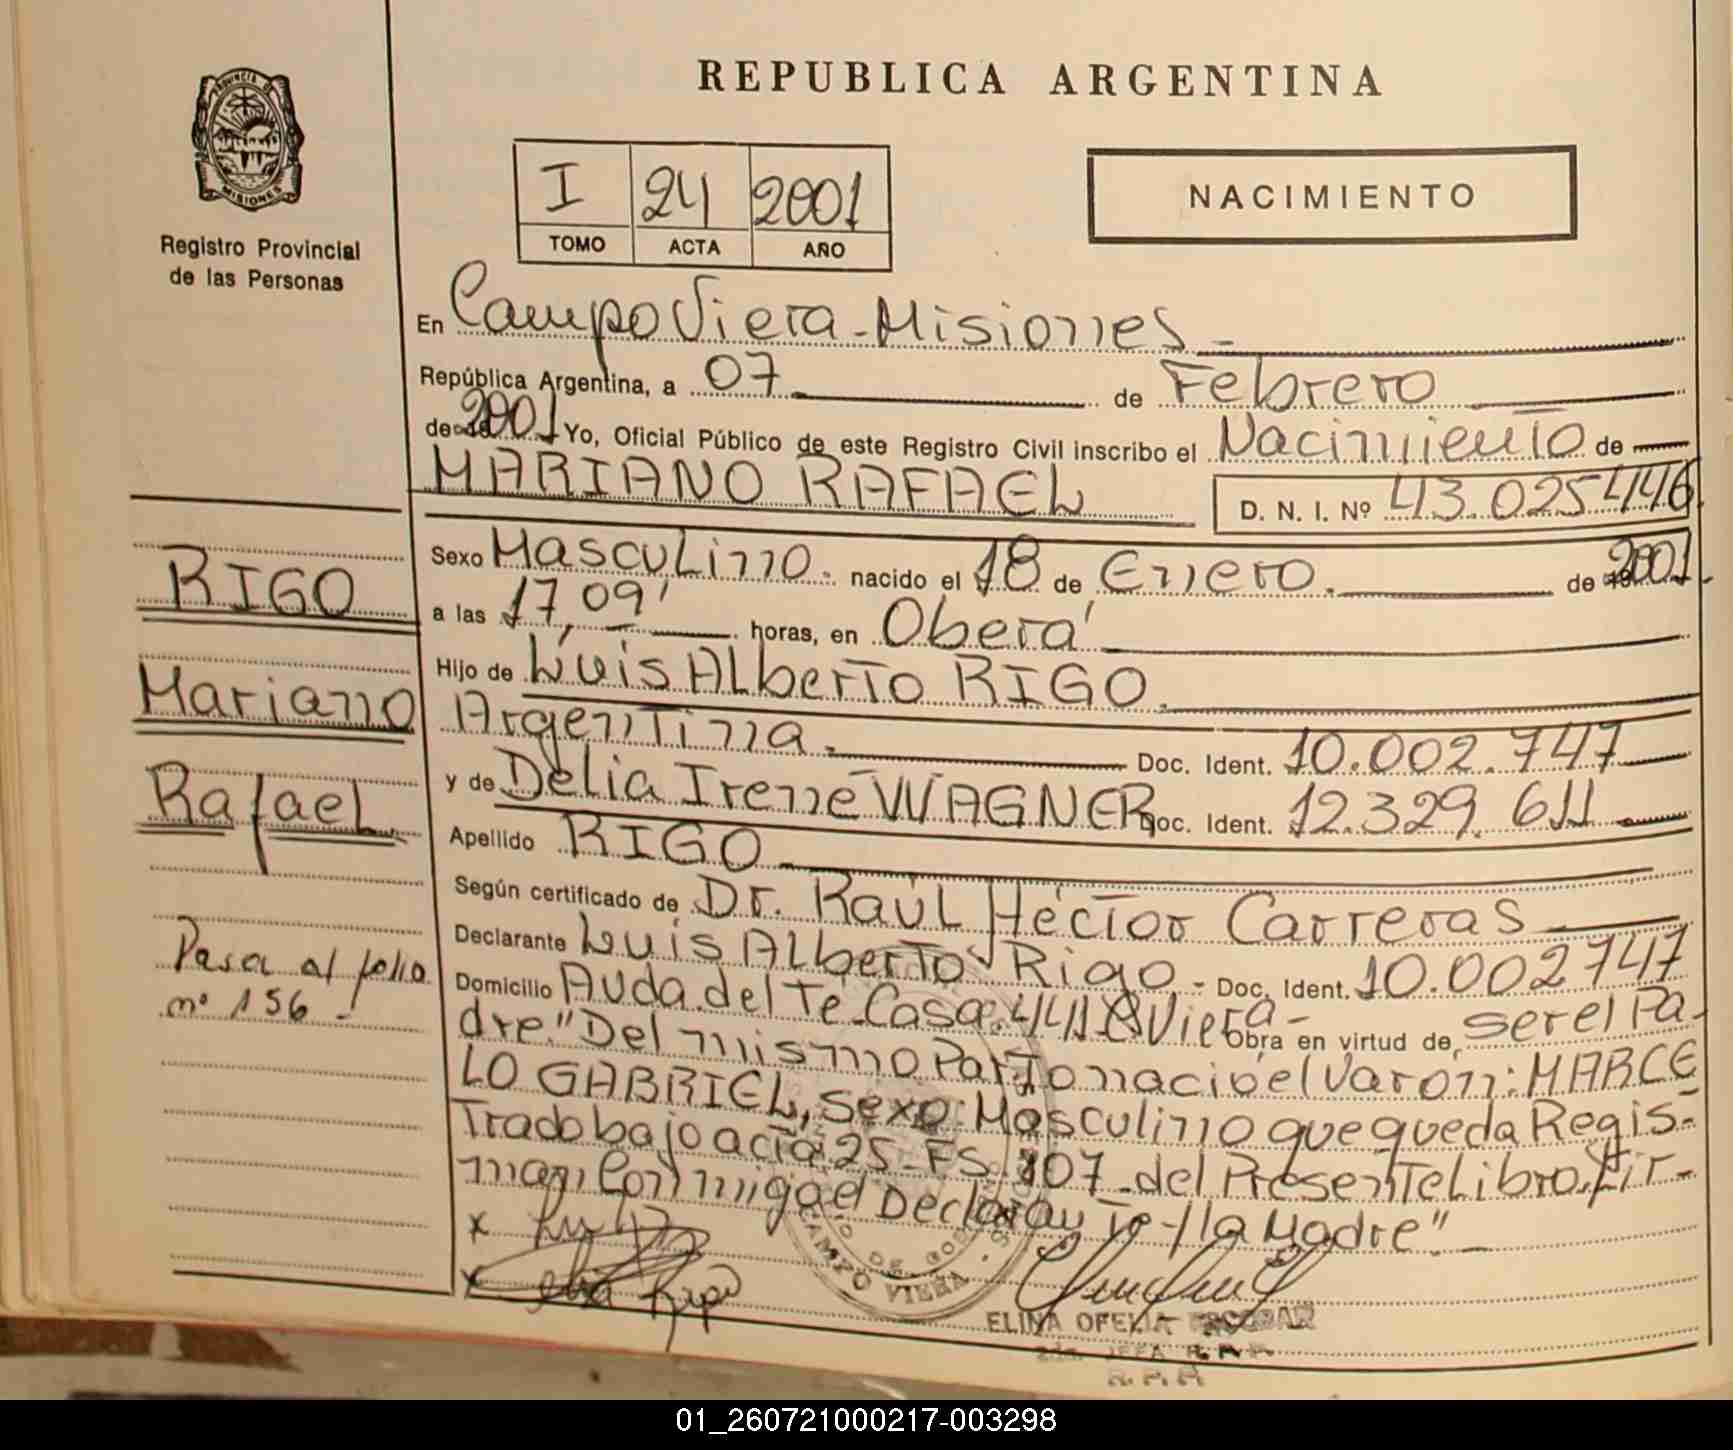 PROVINCIA DE
MISIONES
Registro Provincial
de las Personas
REPUBLICA ARGENTINA
I 24 2001
TOMO ACTA AÑO
NACIMIENTO
En Campo Viera - Misiones -
República Argentina, a 07 de Febrero
de 2001 Yo, Oficial Público de este Registro Civil inscribo el Nacimiento de
MARIANO RAFAEL D. N. I. Nº 43.025446
Sexo Masculino. nacido el 18 de Enero. de 2001
a las 17,09' horas, en Oberá
Hijo de Luis Alberto RIGO.
Argentina. Doc. Ident. 10.002.747
y de Delia Irene WAGNER Doc. Ident. 12.329.611
Apellido RIGO
Según certificado de Dr. Raúl Héctor Carreras
Declarante Luis Alberto Rigo - Doc. Ident. 10.002747
Domicilio Avda. del Te Casa: 441 C Viera - Obra en virtud de ser el Pa-
dre." Del mismo Parto nació el Varón: MARCE
LO GABRIEL, Sexo: Masculino que queda Regis-
Trado bajo acta 25 - FS. 107 - del Presente Libro. Fir-
man Conmigo el Declarante y la Madre" -
RIGO
Mariano
Rafael
Pasa al folio
nº 156 -
x
x Delia Rigo
CAMPO VIERA
ELINA OFELIA ESCOBAR
2da. JEFA R. P. P.
R. P. P.
01_260721000217-003298